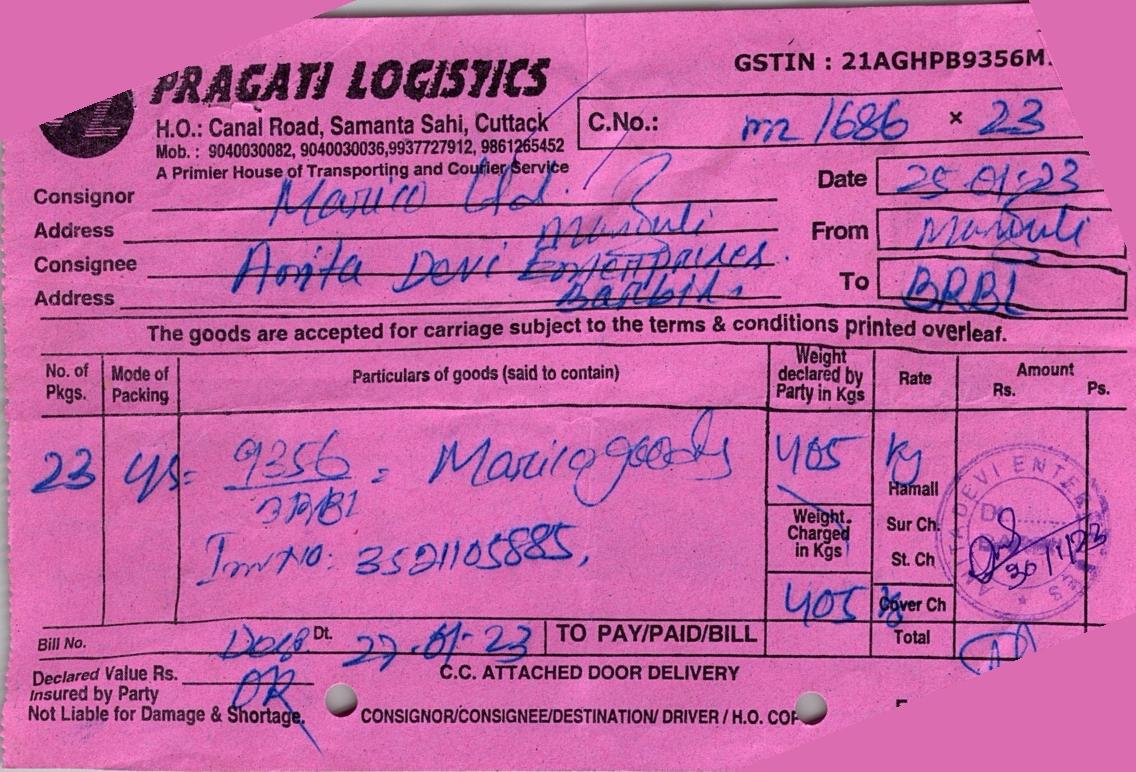 PRAGATI LOGISTICS
GSTIN : 21AGHPB9356M
H.O.: Canal Road, Samanta Sahi, Cuttack
Mob. : 9040030082, 9040030036,9937727912, 9861265452
A Primier House of Transporting and Courier Service
C.No.: m2 /1686 × 23
Date 25-01-23
Consignor Marico Ltd.
From Manguli
Address Manguli
Consignee Anita Devi Enterprises.
To BRBL
Address Barbil
The goods are accepted for carriage subject to the terms & conditions printed overleaf.
No. of Pkgs. Mode of Packing Particulars of goods (said to contain) Weight declared by Party in Kgs Rate Amount Rs. Ps.
23 9356 = Marico goods 405 kg
BRBL
Inv NO: 3521105885,
Hamali
Weight. Charged in Kgs
Sur Ch.
St. Ch
405 kg Cover Ch
ANITA DEVI ENTERPRISES
30/1/23
Bill No. Dt. 27-01-23 TO PAY/PAID/BILL Total
Declared Value Rs.
C.C. ATTACHED DOOR DELIVERY
Insured by Party
Not Liable for Damage & Shortage.
CONSIGNOR/CONSIGNEE/DESTINATION/ DRIVER / H.O. COP